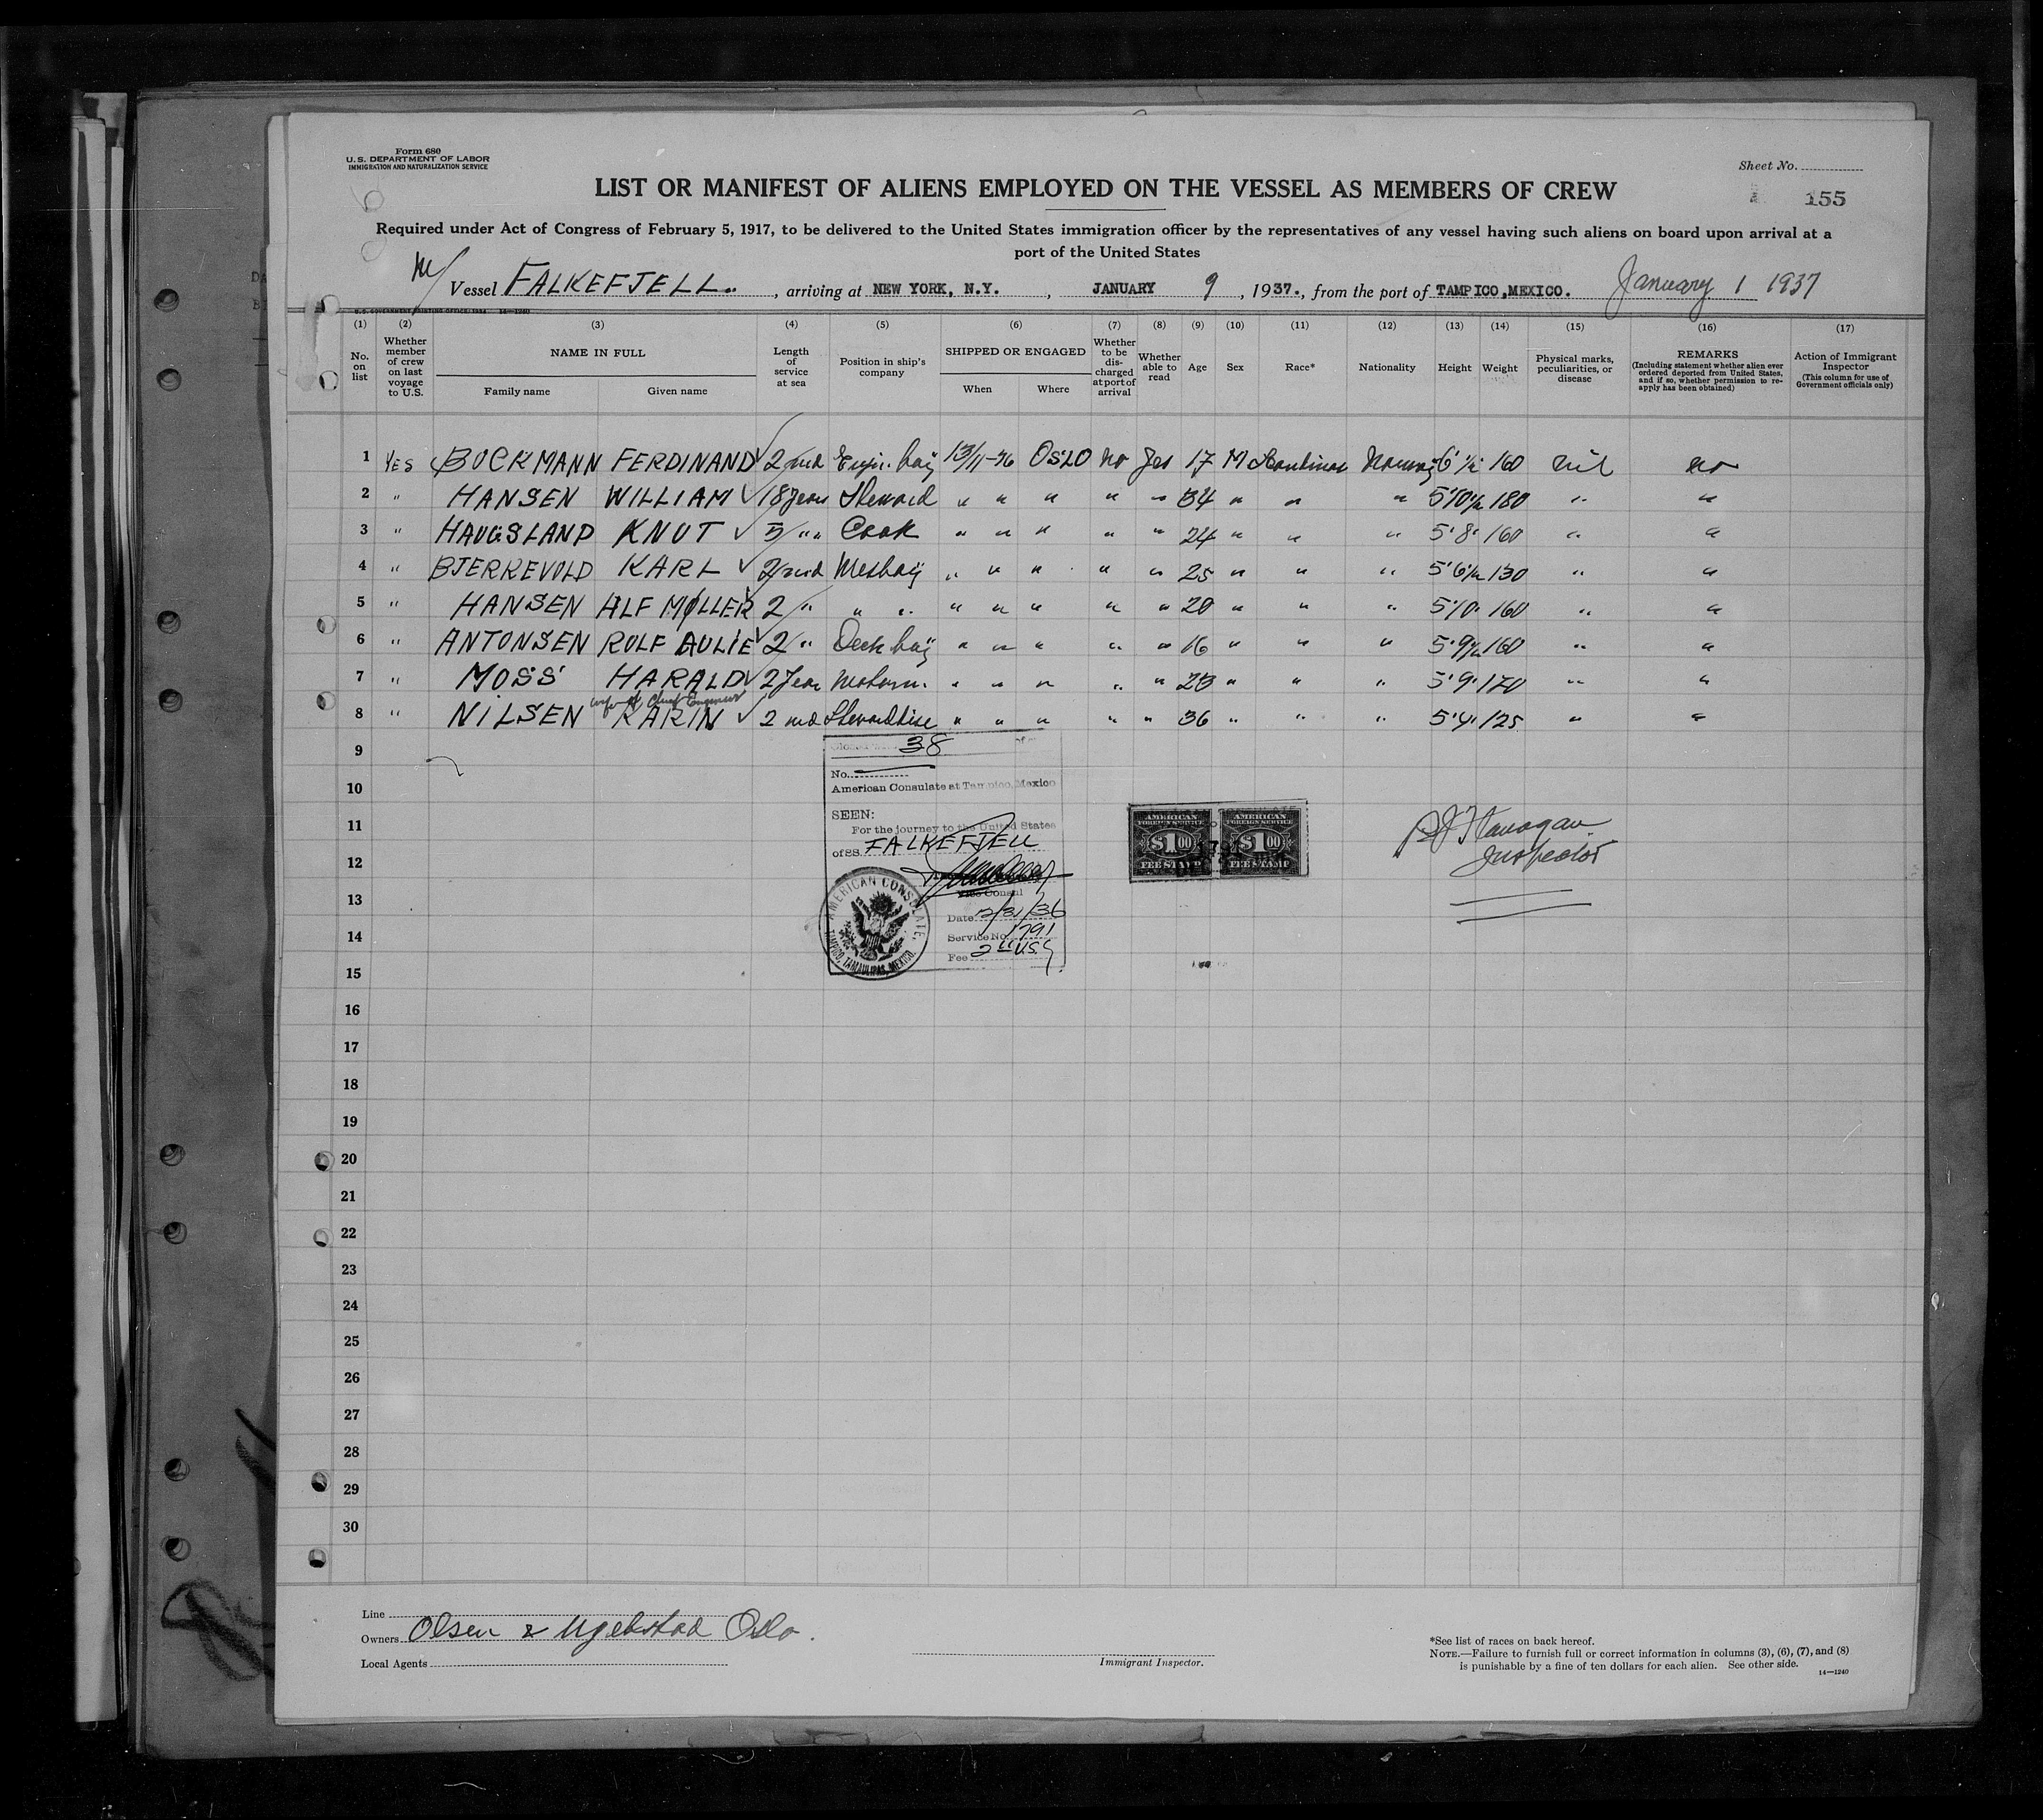 Form 680
U.S. DEPARTMENT OF LABOR
IMMIGRATION AND NATURALIZATION SERVICE
Sheet No.
155
LIST OR MANIFEST OF ALIENS EMPLOYED ON THE VESSEL AS MEMBERS OF CREW
Required under Act of Congress of February 5, 1917, to be delivered to the United States immigration officer by the representatives of any vessel having such aliens on board upon arrival at a
port of the United States
M/ Vessel FALKEFJELL , arriving at NEW YORK, N.Y. , JANUARY 9 , 1937., from the port of TAMPICO,MEXICO. January 1 1937
U.S. GOVERNMENT PRINTING OFFICE: 1934 14—1240
(1) (2) (3) (4) (5) (6) (7) (8) (9) (10) (11) (12) (13) (14) (15) (16) (17)
No. on list
Whether member of crew on last voyage to U.S.
NAME IN FULL
Family name Given name
Length of service at sea
Position in ship's company
SHIPPED OR ENGAGED
When Where
Whether to be discharged at port of arrival
Whether able to read
Age Sex Race* Nationality Height Weight
Physical marks, peculiarities, or disease
REMARKS
(Including statement whether alien ever ordered deported from United States, and if so, whether permission to re-apply has been obtained)
Action of Immigrant Inspector
(This column for use of Government officials only)
1 YES BOCKMANN FERDINAND 2 Engin. boy 13/11-36 OSLO no Yes 17 M Norway 6' 160 nil no
2 " HANSEN WILLIAM 18 years Steward " " " " " 34 " " " 5'10½ 180 " "
3 " HAUGSLAND KNUT 5 " " Cook " " " " " 24 " " " 5'8" 160 " "
4 " BJERKEVOLD KARL 2 Mesboy " " " " " 25 " " " 5'6½ 130 " "
5 " HANSEN ALF MØLLER 2 " " " " " " " " 20 " " " 5'10" 160 " "
6 " ANTONSEN ROLF AULIE 2 " Deck boy " " " " " 16 " " " 5'9½ 160 " "
7 " MOSS HARALD 2 Year Motorm. " " " " " 23 " " " 5'9" 170 " "
wife of Chief Engineer
8 " NILSEN KARIN 2 " " " " " 36 " " " 5'4" 125 " "
9
38
No.
10
American Consulate at Tampico, Mexico
SEEN:
11
For the journey to the United States
of SS. FALKEFJELL
12
Vice Consul
13
Date 12/31/36
14
Service No. 1791
Fee
AMERICAN CONSULATE,
TAMPICO, TAMAULIPAS, MEXICO.
AMERICAN FOREIGN SERVICE $1 00 FEE STAMP
AMERICAN FOREIGN SERVICE $1 00 FEE STAMP
Flanagan
Inspector
15
16
17
18
19
20
21
22
23
24
25
26
27
28
29
30
Line
Owners Olsen & Ugelstad Oslo.
Local Agents
Immigrant Inspector.
*See list of races on back hereof.
NOTE.—Failure to furnish full or correct information in columns (3), (6), (7), and (8)
is punishable by a fine of ten dollars for each alien. See other side.
14—1240